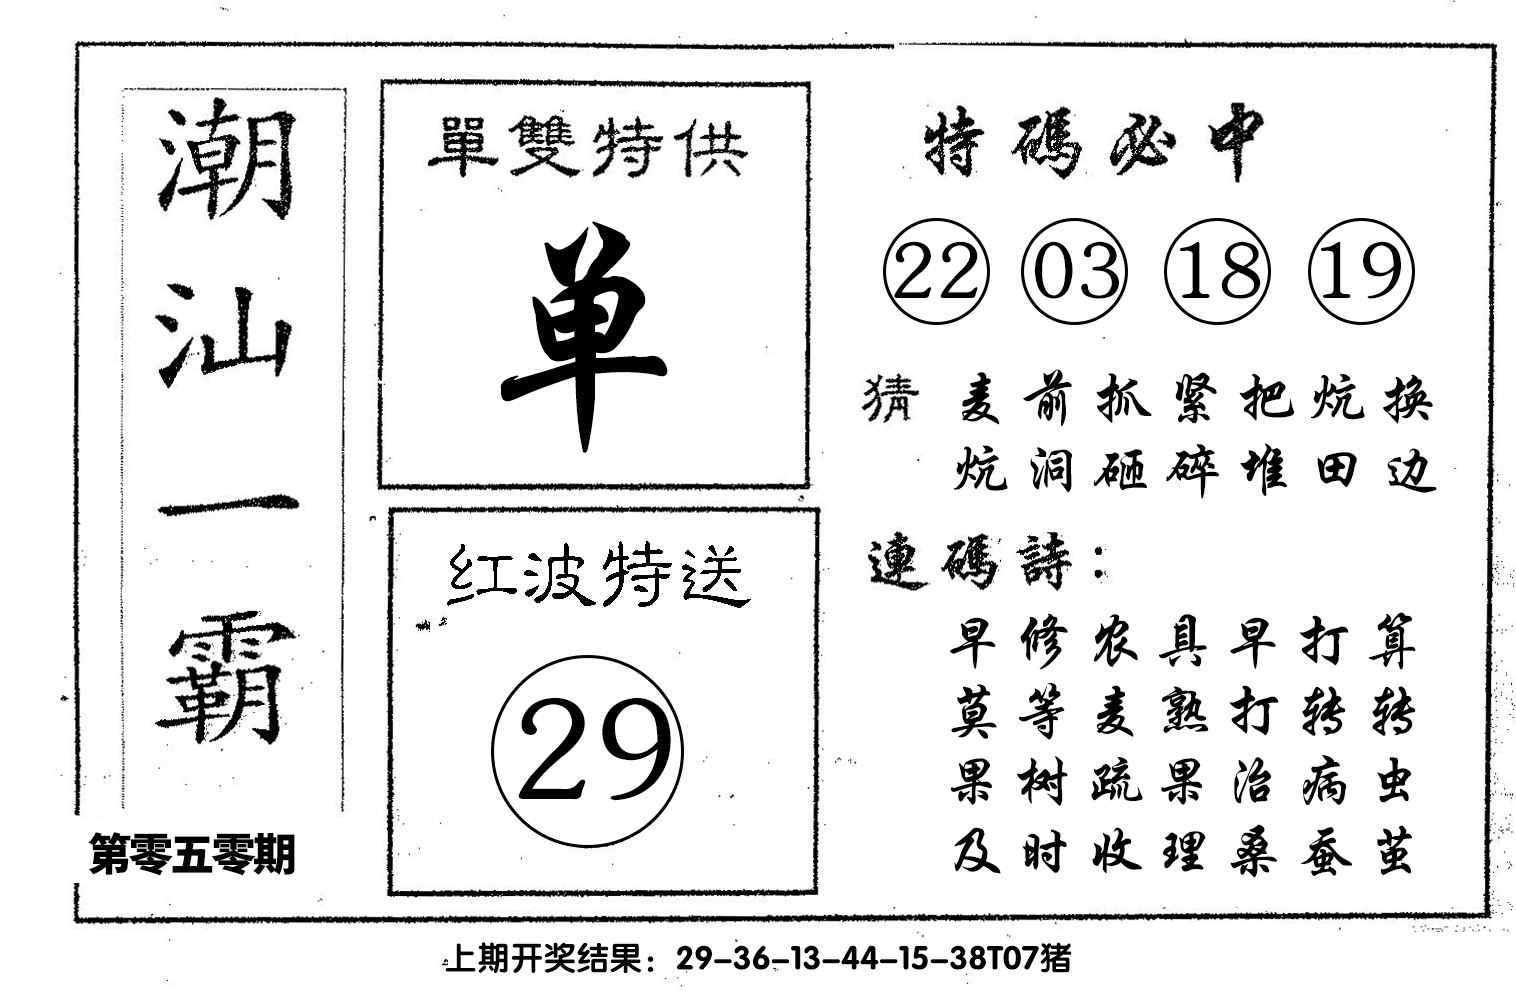 潮汕一霸
第零五零期
單雙特供
单
红波特送
29
特碼必中
22 03 18 19
猜 麦前抓紧把炕换
炕洞砸碎堆田边
連碼詩：
早修农具早打算
莫等麦熟打转转
果树疏果治病虫
及时收理桑蚕茧
上期开奖结果：29-36-13-44-15-38T07猪